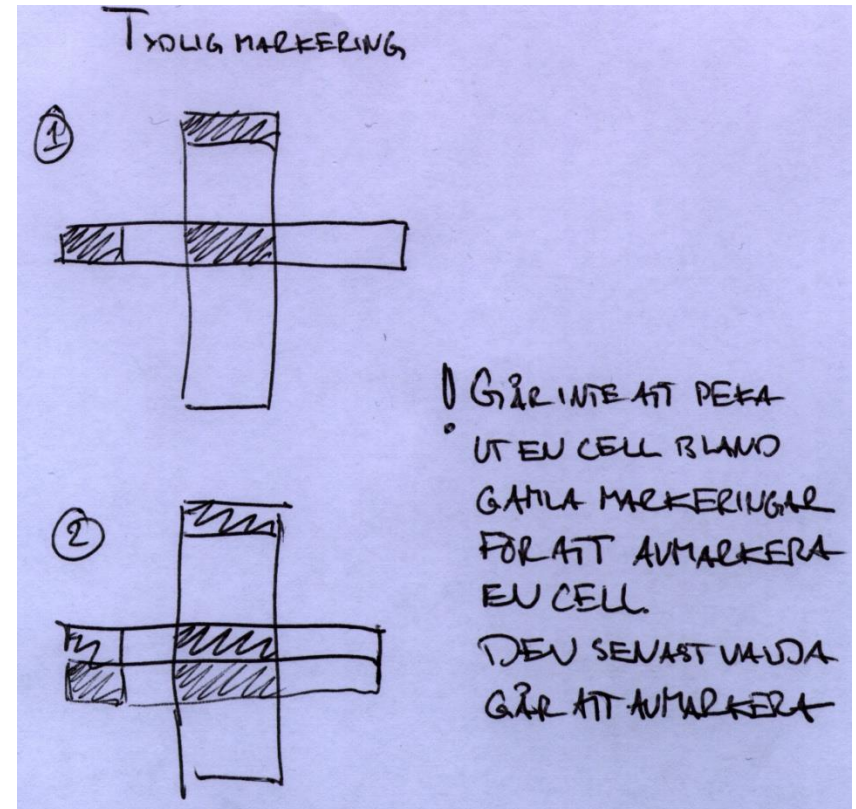 TYDLIG MARKERING
1
! GÅR INTE ATT PEKA
UT EN CELL BLAND
GAMLA MARKERINGAR
FÖR ATT AVMARKERA
EN CELL.
2
DEN SENAST VALDA
GÅR ATT AVMARKERA